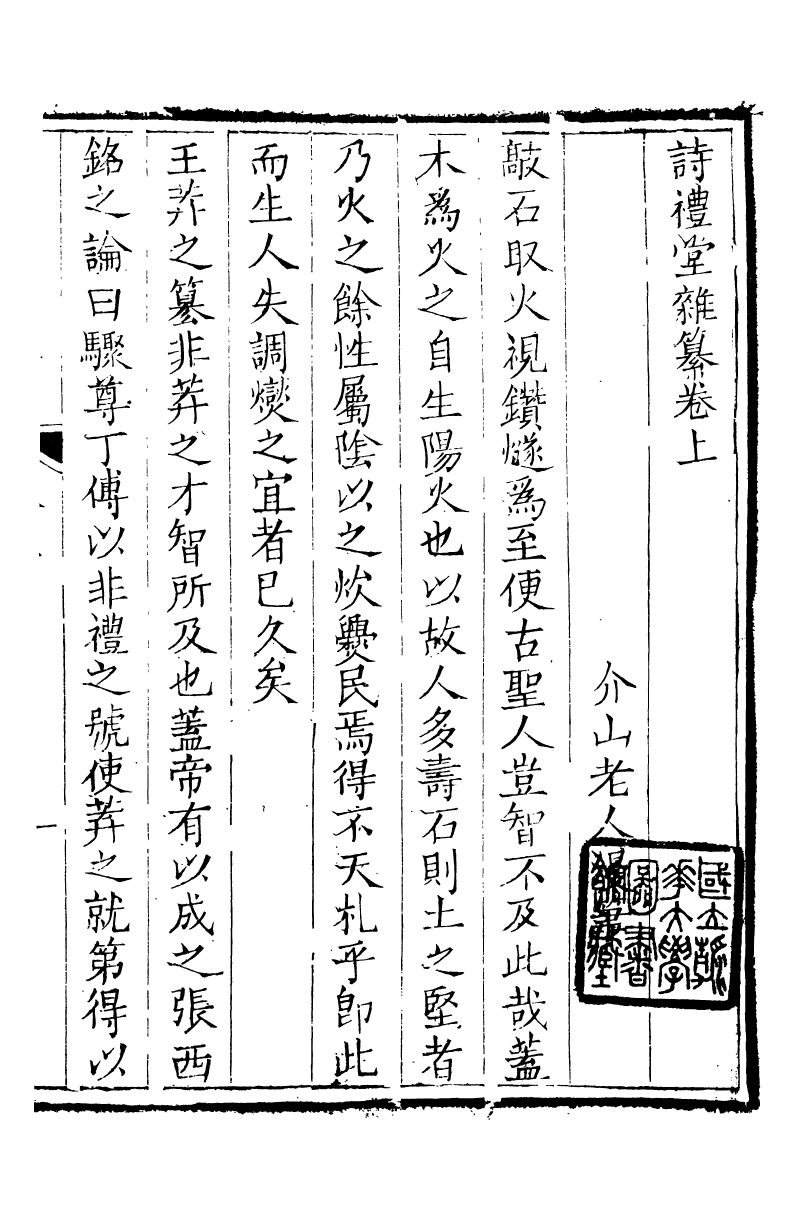 詩禮堂雜纂卷上
介山老人
敲石取火視鑽燧爲至便古聖人豈智不及此哉蓋
木爲火之自生陽火也以故人多壽石則土之堅者
乃火之餘性屬陰以之炊爨民焉得不夭札乎卽此
而生人失調燮之宜者已久矣
王莽之篡非莽之才智所及也蓋帝有以成之張西
銘之論曰驟尊丁傅以非禮之號使莽之就第得以
一
國立清
華大學
圖書